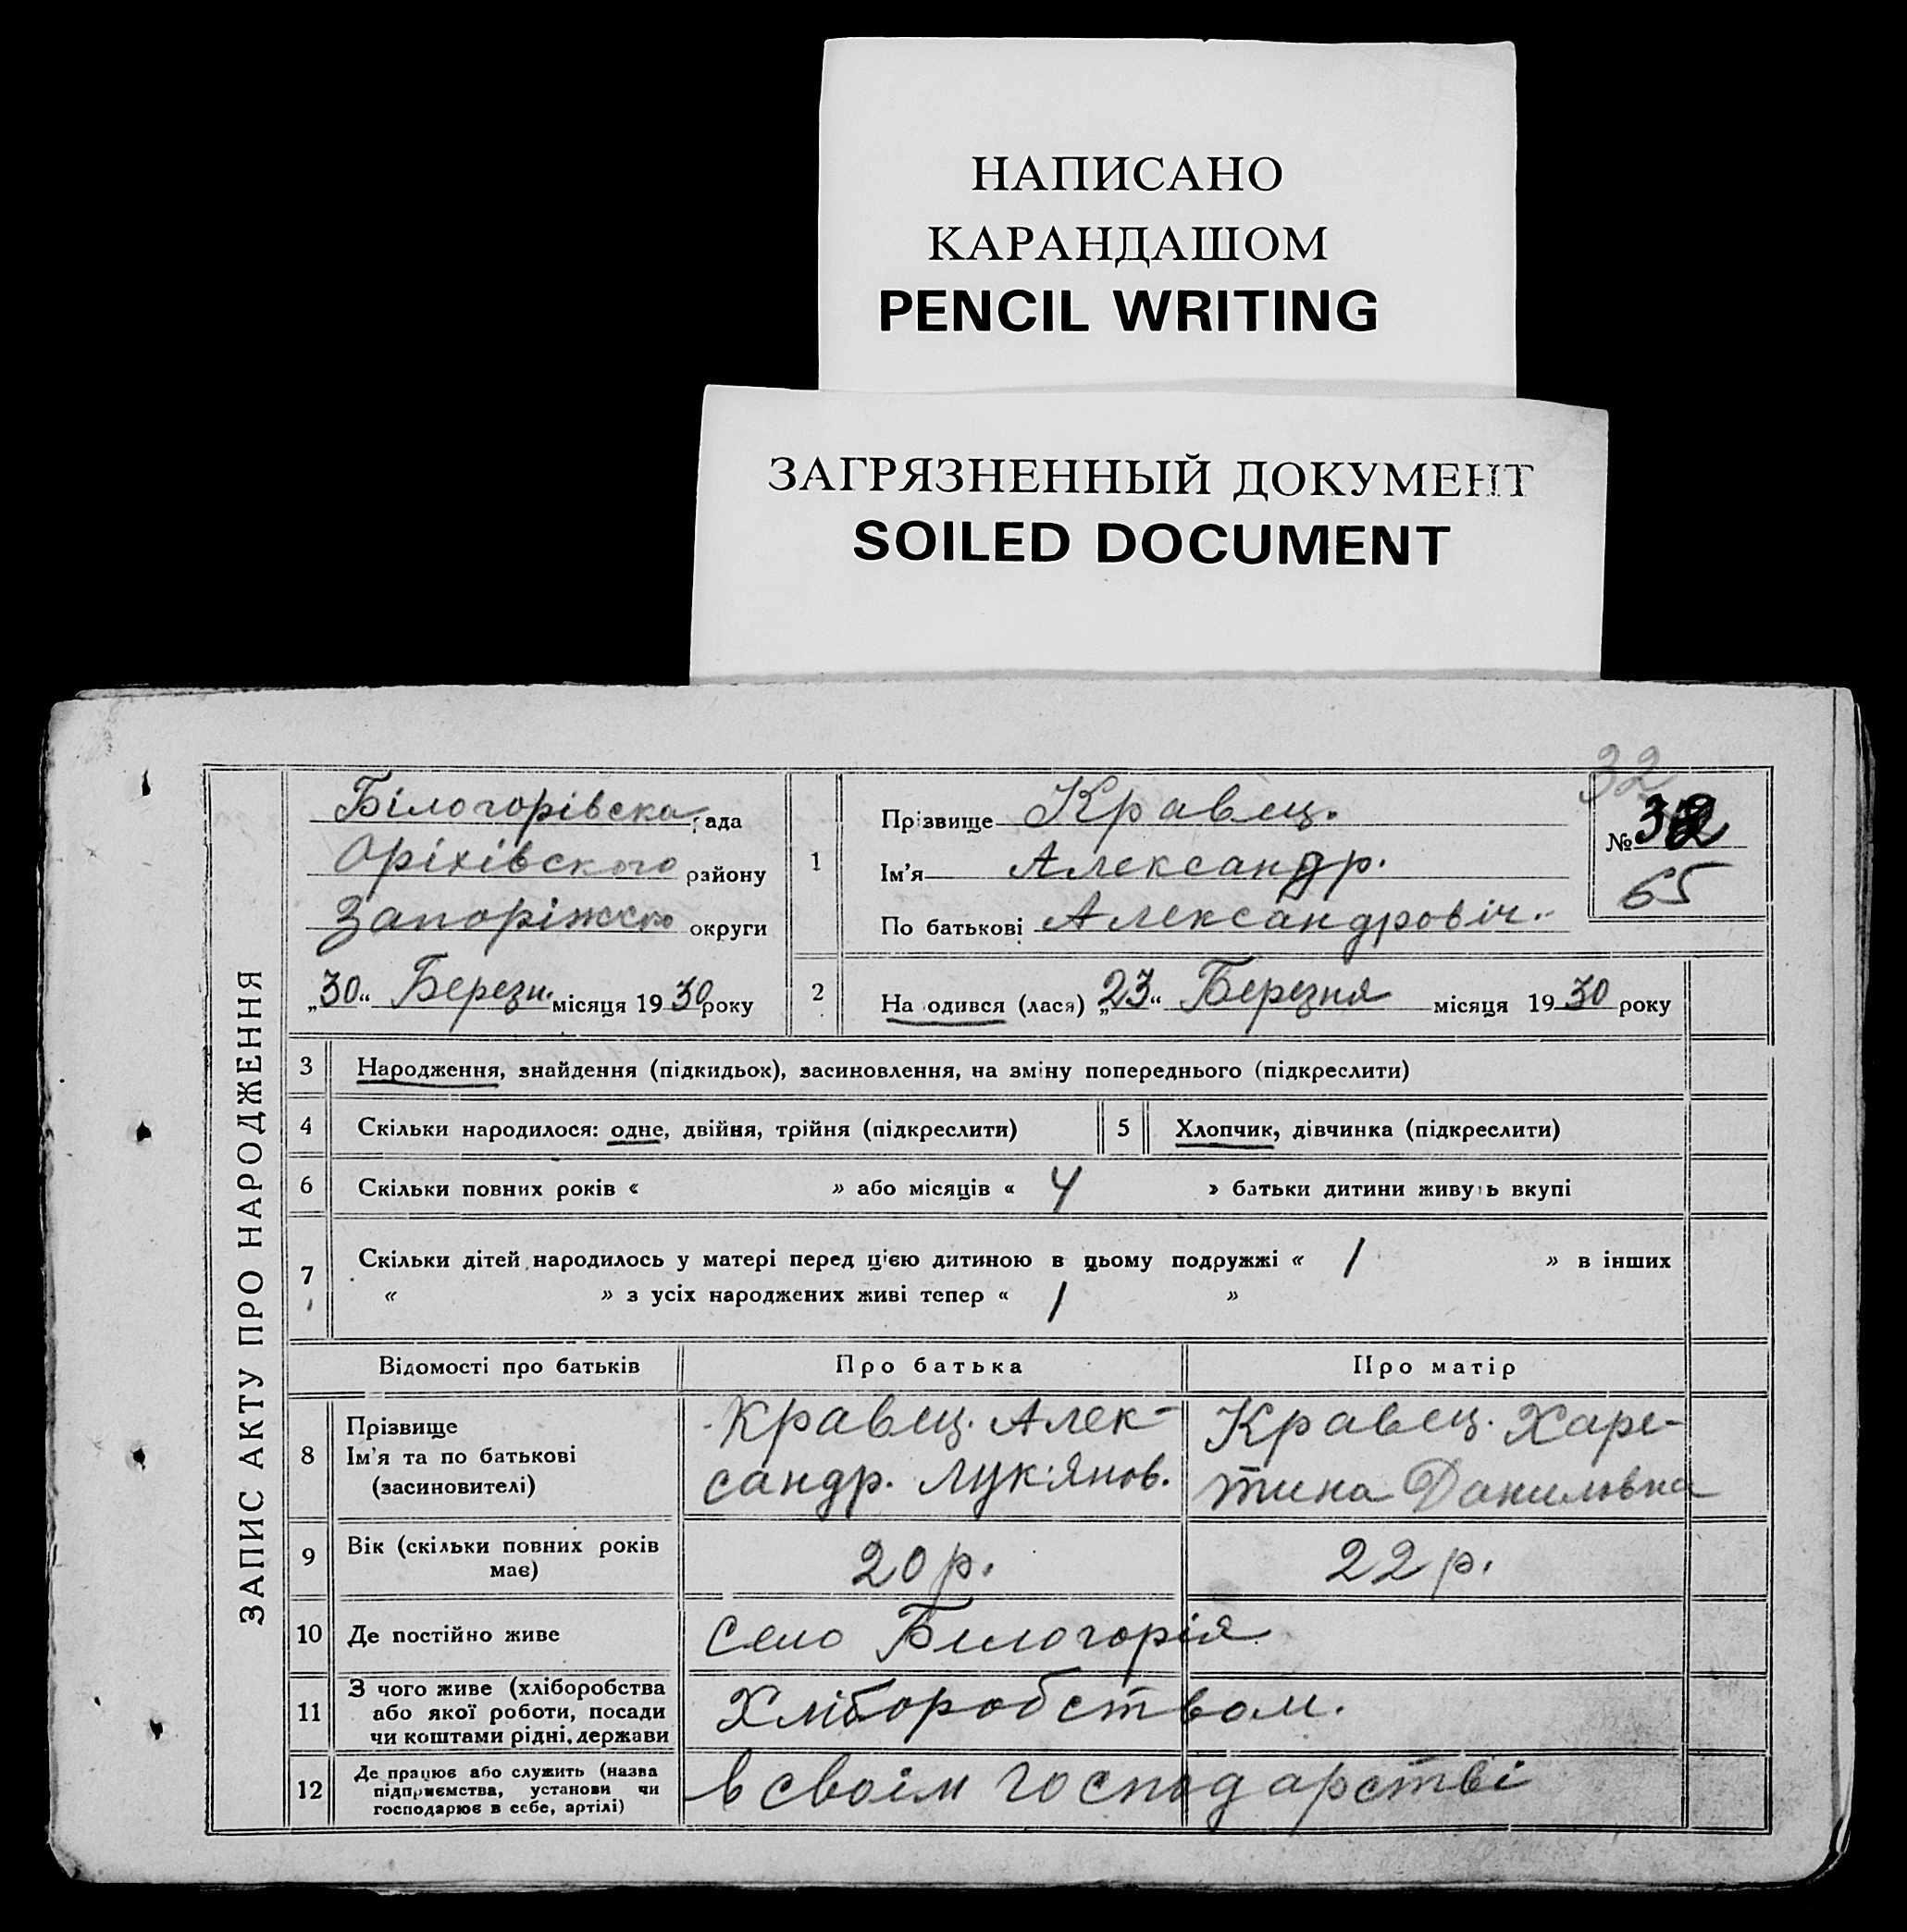 НАПИСАНО
КАРАНДАШОМ
PENCIL WRITING
ЗАГРЯЗНЕННЫЙ ДОКУМЕНТ
SOILED DOCUMENT
ЗАПИС АКТУ ПРО НАРОДЖЕННЯ
Білогорівська рада
Оріхівського району
Запоріжсько округи
„30“ Березн. місяця 1930 року
1
Прізвище Кравец.
Ім'я Александр.
По батькові Александровіч.
32
№ 32
65
2 Народився (лася) „23“ Березня місяця 1930 року
3 Народження, знайдення (підкидьок), засиновлення, на зміну попереднього (підкреслити)
4 Скільки народилося: одне, двійня, трійня (підкреслити) 5 Хлопчик, дівчинка (підкреслити)
6 Скільки повних років « » або місяців « 4 » батьки дитини живуть вкупі
7 Скільки дітей народилось у матері перед цією дитиною в цьому подружжі « 1 » в інших
« » з усіх народжених живі тепер « 1 »
Відомості про батьків Про батька Про матір
8 Прізвище
Ім'я та по батькові
(засиновителі)
Кравец. Алек-
сандр. Лук'янов.
Кравец. Харе-
тина Даниловна
9 Вік (скільки повних років
має)
20 р. 22 р.
10 Де постійно живе село Білогорія
11 З чого живе (хліборобства
або якої роботи, посади
чи коштами рідні, держави
Хліборобством.
12 Де працює або служить (назва
підприємства, установи чи
господарює в себе, артілі)
в своім господарстві